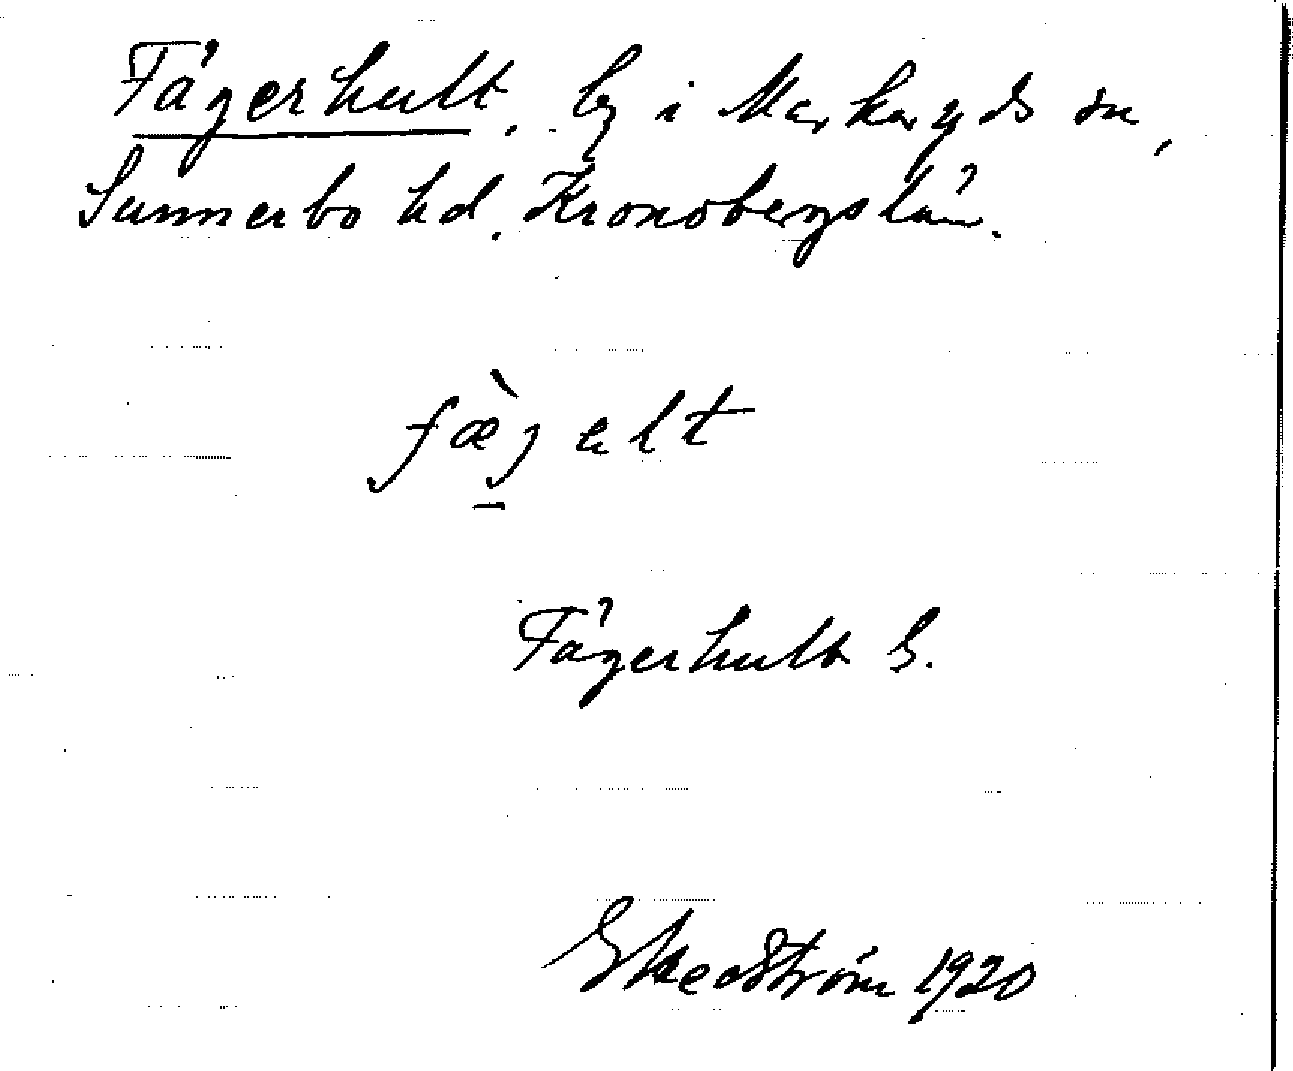 Fägerhult, by i Markaryds sn,
Sunnerbo hd. Kronobergs län.
fæ̀jelt
Fägerhult G.
G Hedström 1920